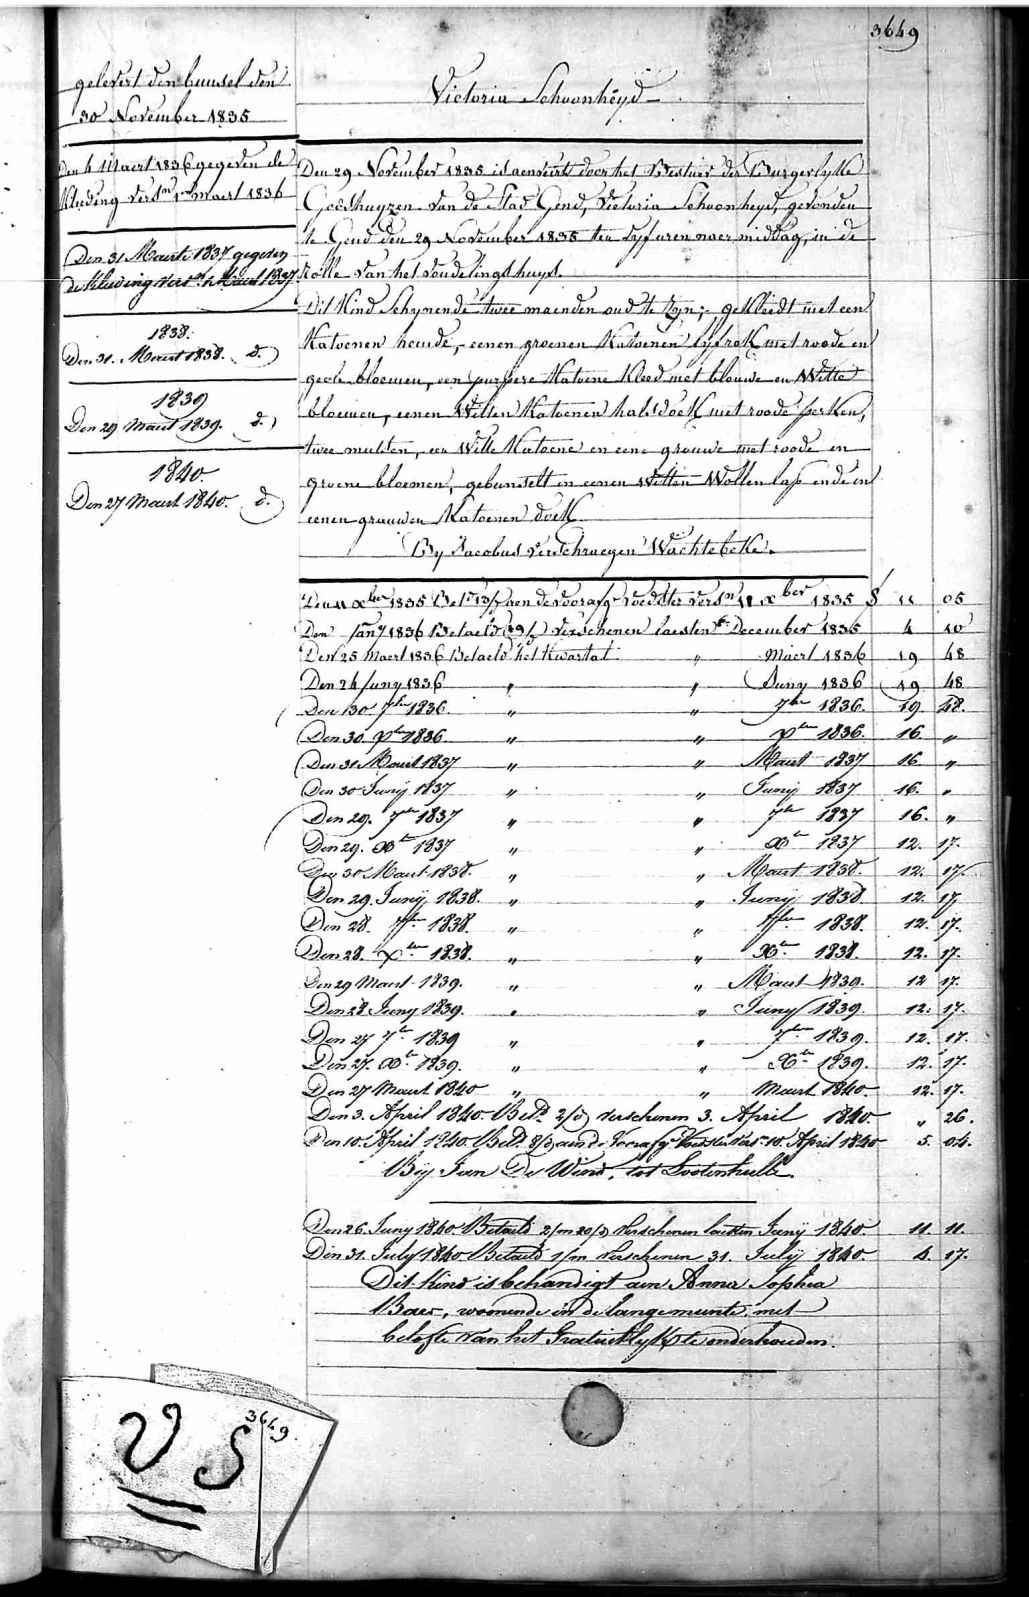 3649
gelevert den bunsel den
30 November 1835
Den 4 Maert 1836 gegeven de
Kleeding vers.n 1.en maert 1836
Den 31 Maerte 1837 gegeven
de Kleeding vers.n Maert 1837.
1838.
Den 31. Maert 1838. d.)
1839
Den 29 Maert 1839. d.)
1840.
Den 27 Maert 1840. d.)
Victoria Schoonheyd
Den 29 November 1835 is aenveert door het Bestuer der Burgerlyke
Godshuyzen van de Stad Gend, Victoria Schoonheyd, gevonden
te Gend den 29 November 1835 ten vyf uren naer middag, in de
rolle van het Vondelingshuys.
Dit Kind Schynende twee maenden oud te Zyn; gekleedt met een
Katoenen hemde, eenen groenen Katoenen lyfrok met roode en
geele bloemen, een purpere Katoene Kleed met blouwe en Witte
bloemen, eenen Witten Katoenen halsdoek met roode perken,
twee mutsen, een Witte Katoene en eene grauwe met roode en
groene bloemen, gebunselt in eenen Witten Wollen lap ende in
eenen grauwen Katoenen doek
By Jacobus Verschraegen Wachtebeke.
Den 11 xber 1835 Bet.d 13/ aen de voorafg. voedster vers.n 11 xber 1835 § 11 05
Den Jany 1836 Betaeld (19/) verschenen laesten December 1835 4 10
Den 25 Maert 1836 Betaeld het Kwartal " Maert 1836 19 48
Den 24 Juny 1836 " " Juny 1836 19 48
Den 30 7ber 1836. " " 7ber 1836 19 48.
Den 30. xber 1836 " " xber 1836 16 "
Den 31 Maert 1837 " " Maert 1837 16 "
Den 30 Junij 1837 " " Junij 1837 16. "
Den 29. 7ber 1837 " " 7ber 1837 16. "
Den 29. xber 1837 " " xber 1837 12. 17.
Den 30 Maert 1838. " " Maert 1838. 12. 17.
Den 29. Junij 1838. " " Junij 1838 12. 17.
Den 28. 7ber 1838. " " 7ber 1838. 12. 17.
Den 28. xber 1838. " " xber 1838. 12. 17.
Den 29 Maert 1839. " " Maert 1839. 12 17.
Den 28 Juny 1839. " " Juny 1839. 12. 17.
Den 27 7ber 1839 " " 7ber 1839. 12. 17.
Den 27. xber 1839. " " xber 1839. 12. 17.
Den 27 Maert 1840 " " Maert 1840. 12. 17.
Den 3. April 1840 Bet.d 2/d) verschenen 3. April 1840. " 26.
Den 10. April 1840. Bet.d 8/d) aen de voorafg. vers.n 10. April 1840 5. 04.
Bij Jan De Wind, tot Lootenhulle.
Den 26. Juny 1840. Betaeld 2/m 20/d) Verschenen laetsten Junij 1840. 11. 11.
Den 31. July 1840 Betaeld 1/m verschenen 31. Julij 1840. 4. 17.
Dit Kind is behandigt aen Anna Sophia
Baer, woonende in de langemunte, met
belofte van het Gratuitlyk te onderhouden.
V S
3649